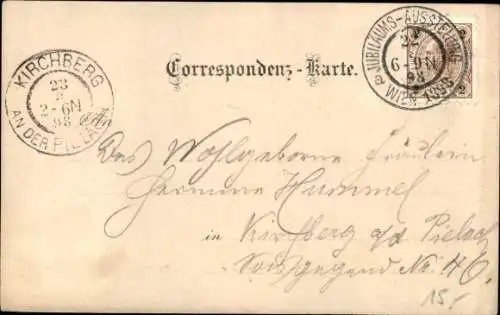 JUBILÄUMS-AUSSTELLUNG
22
6-9N
98
WIEN 1898
KIRCHBERG
23
2-6N
98
AN DER PIELACH
Correspondenz-Karte.
An
Das Wohlgeborne Fräulein
Hermine Hummel
in Kirchberg a/d Pielach
No. 46.
15.-